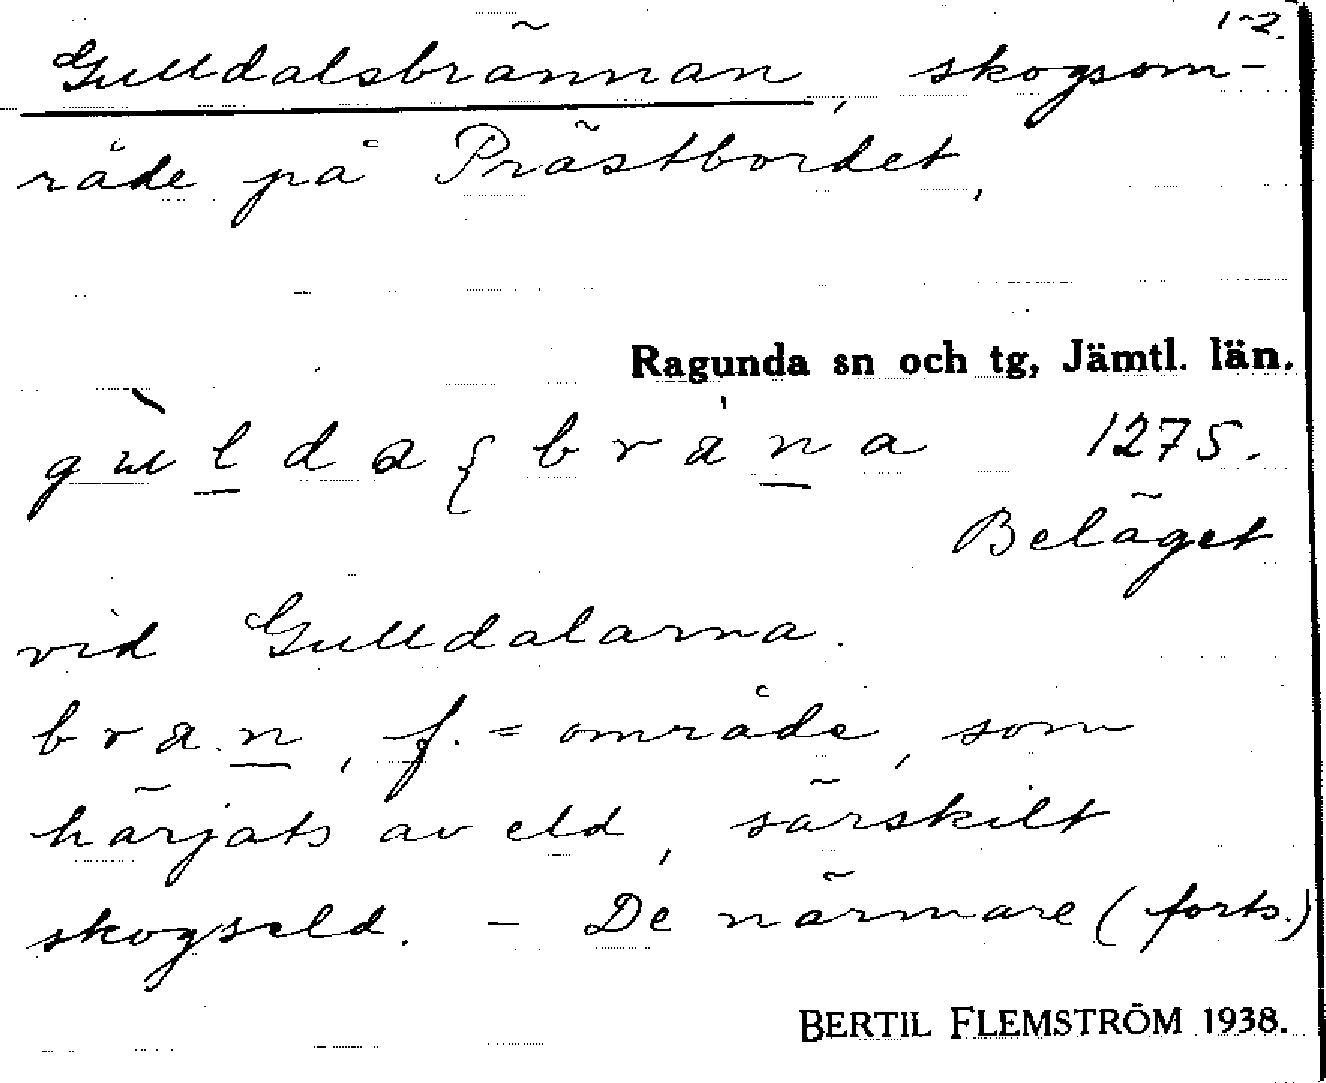 1-2.
Gulldalsbrännan, skogsom-
råde på Prästbordet.
Ragunda sn och tg, Jämtl. län.
gùldaʃbràna 1275.
Beläget
vid Gulldalarna.
bran, f. = område, som
härjats av eld, särskilt
skogseld. - De närmare (forts.)
BERTIL FLEMSTRÖM 1938.